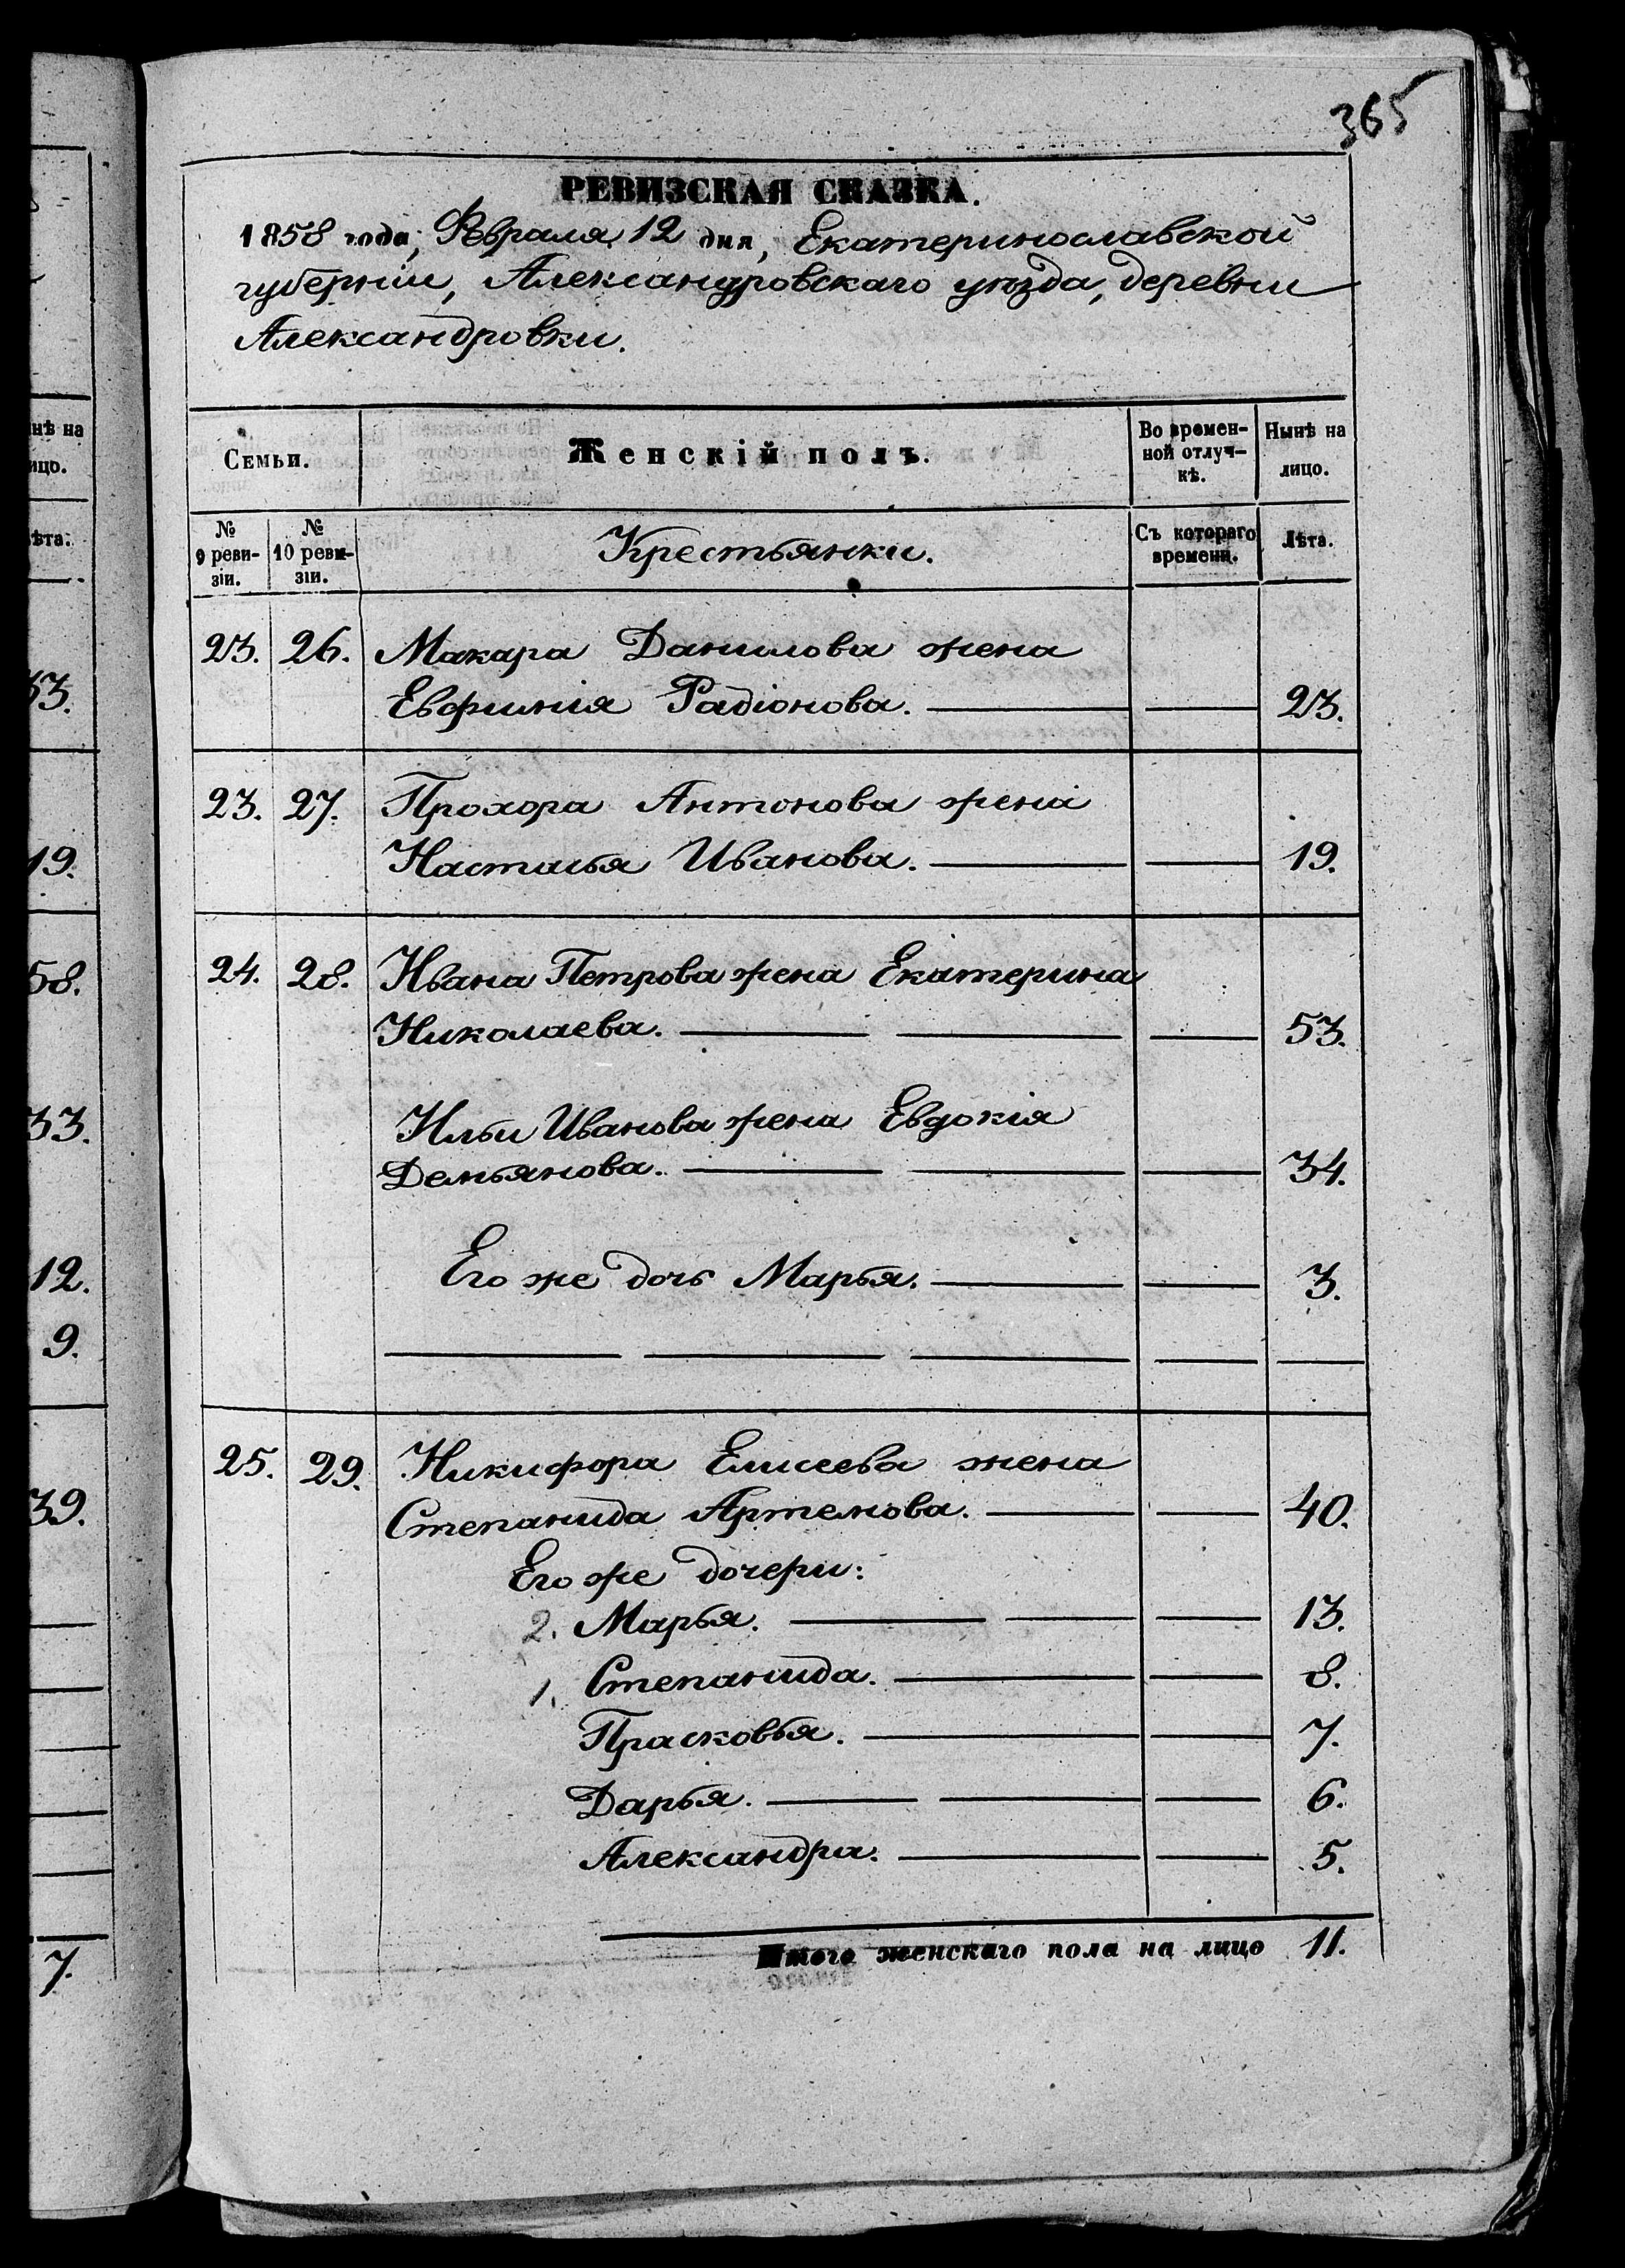 365
РЕВИЗСКАЯ СКАЗКА.
1858 года, Февраля 12 дня, Екатеринославской
губерніи, Александровскаго уѣзда, деревни
Александровки.
Семьи.
Женскій полъ.
Во времен-
ной отлуч-
кѣ.
Нынѣ на
лицо.
№
9 реви-
зіи.
№
10 реви-
зіи.
Крестьянки.
Съ котораго
времени.
Лѣта.
23. 26. Макара Данилова жена
Евфимія Радіонова. 23.
23. 27. Прохора Антонова жена
Настасья Иванова. 19.
24. 28. Ивана Петрова жена Екатерина
Николаева. 53.
Ильи Иванова жена Евдокія
Демьянова. 34.
Его же дочь Марья. 3.
25. 29. Никифора Елисеева жена
Степанида Артемова. 40.
Его же дочери:
2. Марья. 13.
1. Степанида. 8.
Прасковья. 7.
Дарья. 6.
Александра. 5.
Итого женскаго пола на лицо 11.
нѣ на
ицо.
ѣта.
33.
19.
58.
33.
12.
9.
39.
7.